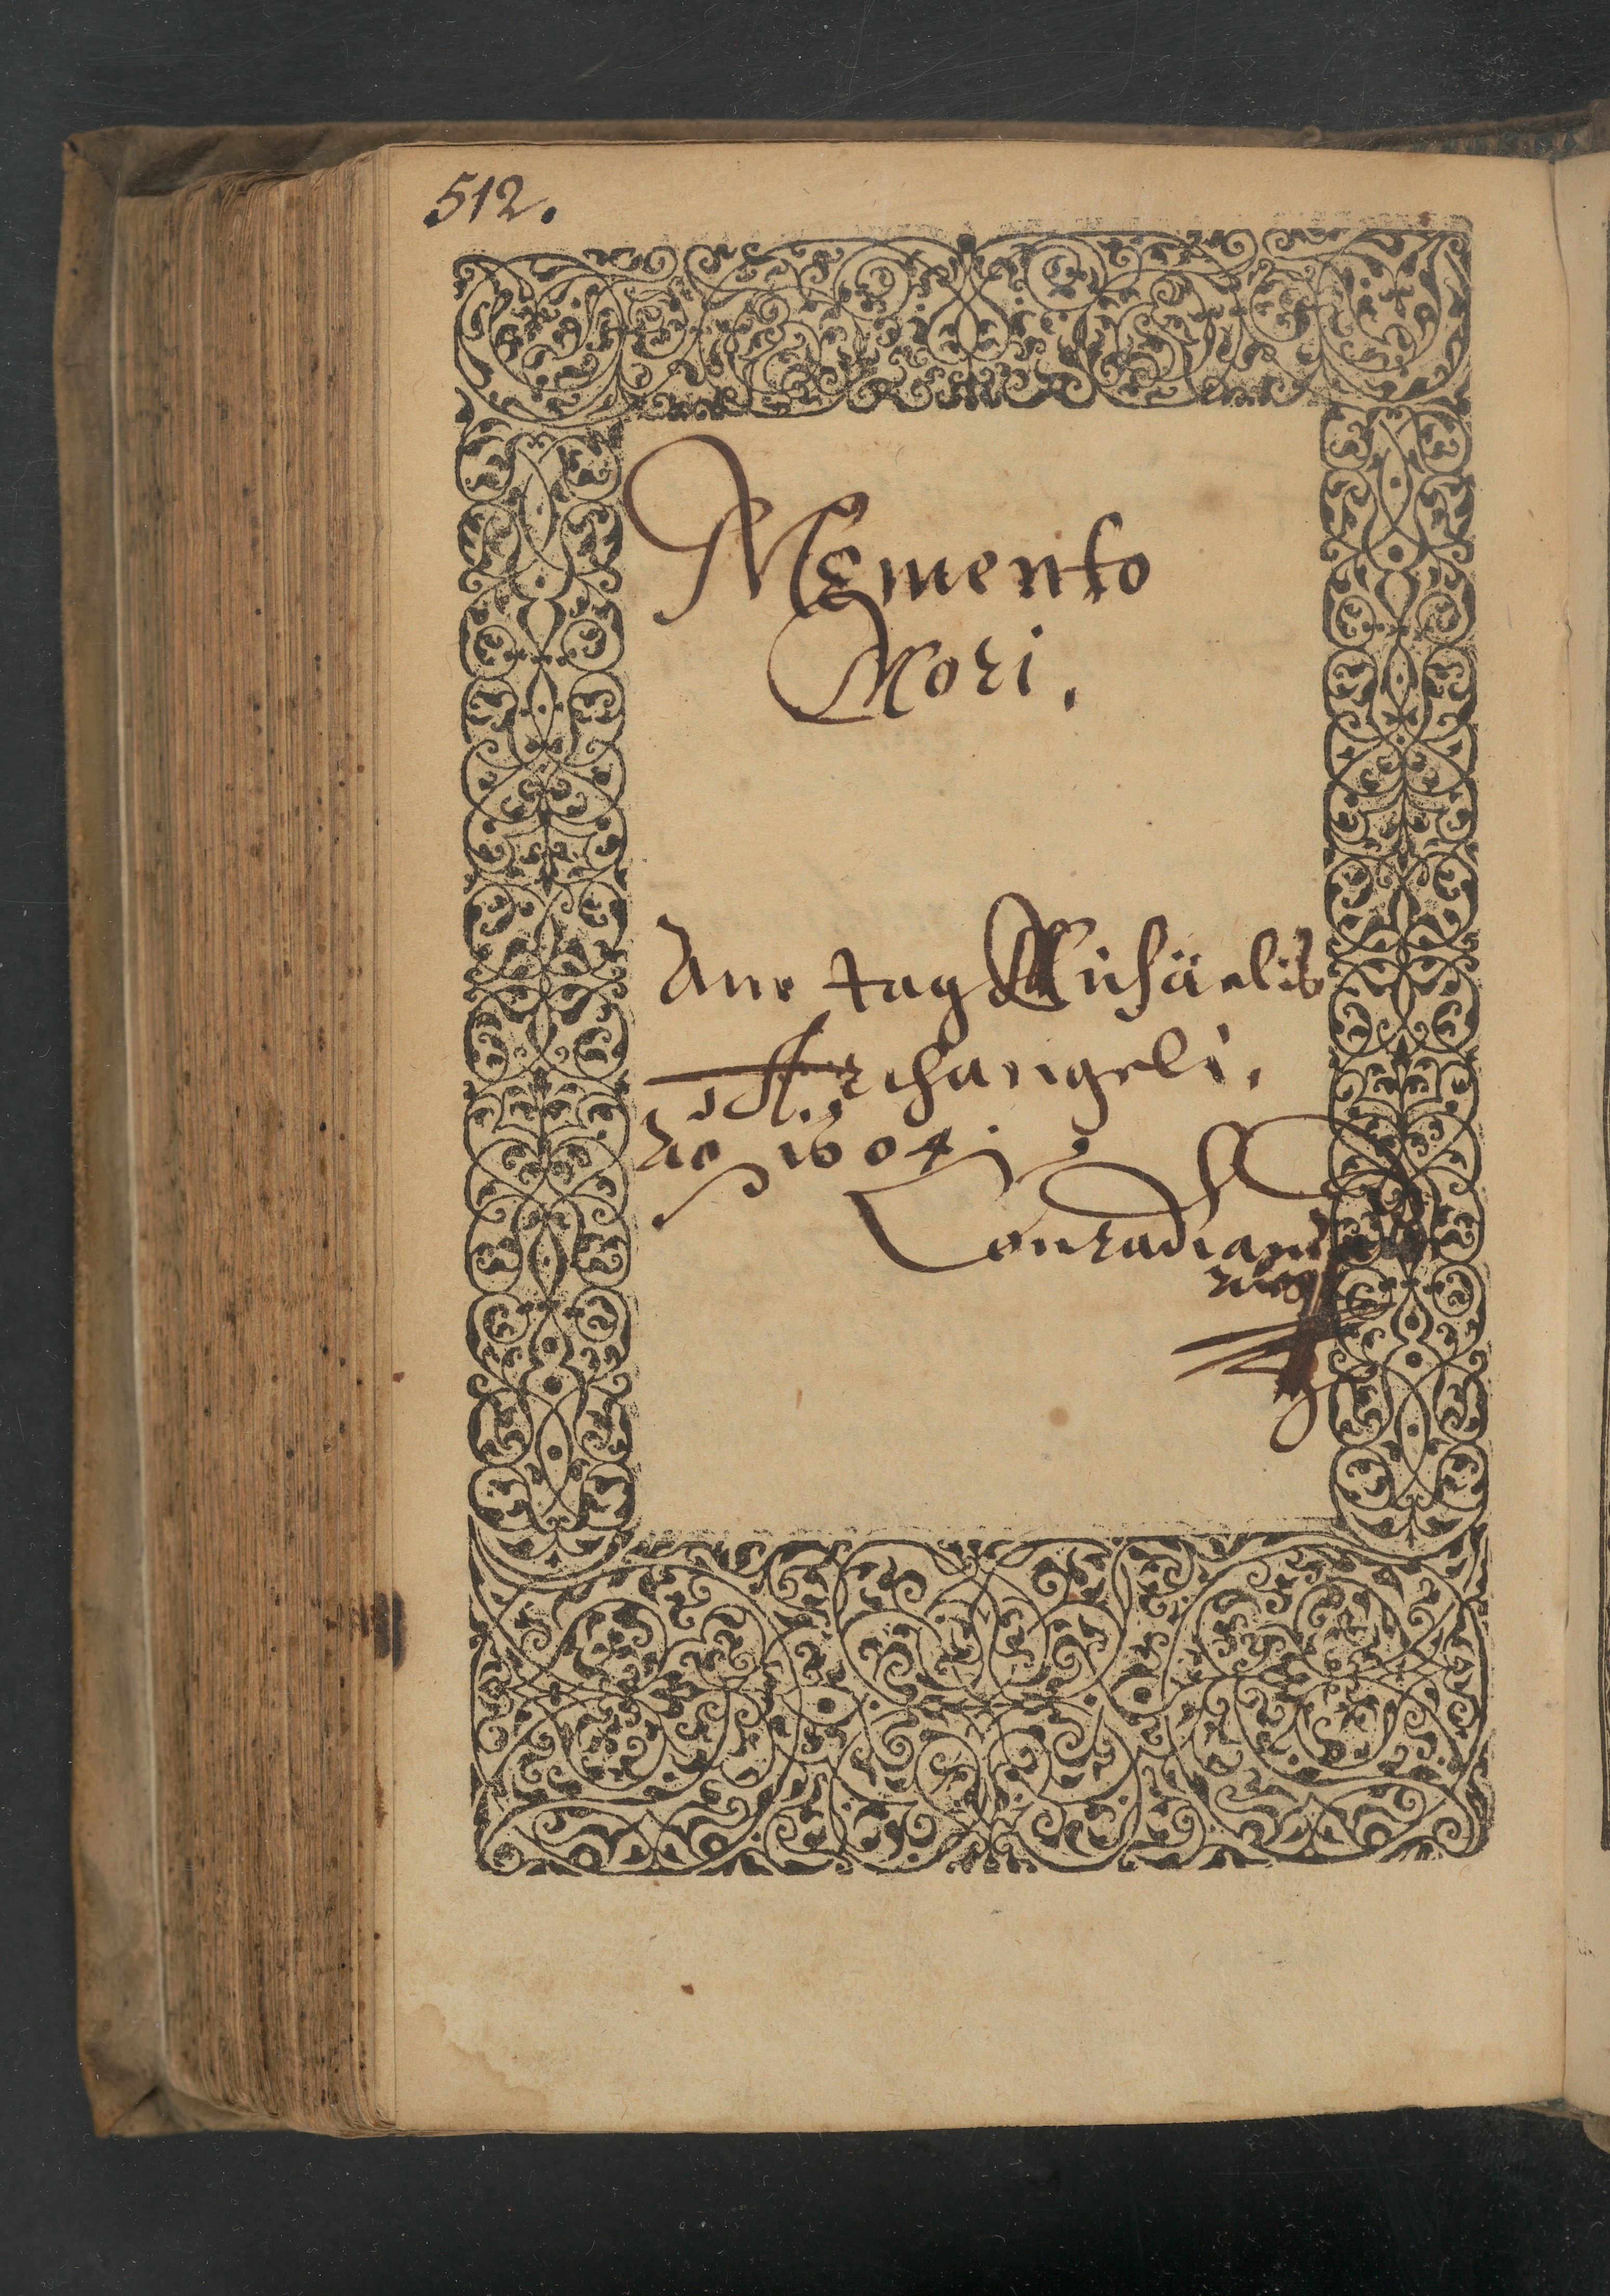 512.
Memento
Mori.
Am tag Michäelis
Archangeli.
Ao 1604.